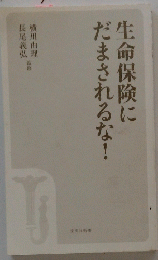 生命保険に
だまされるな！
横川由理
長尾義弘 監修